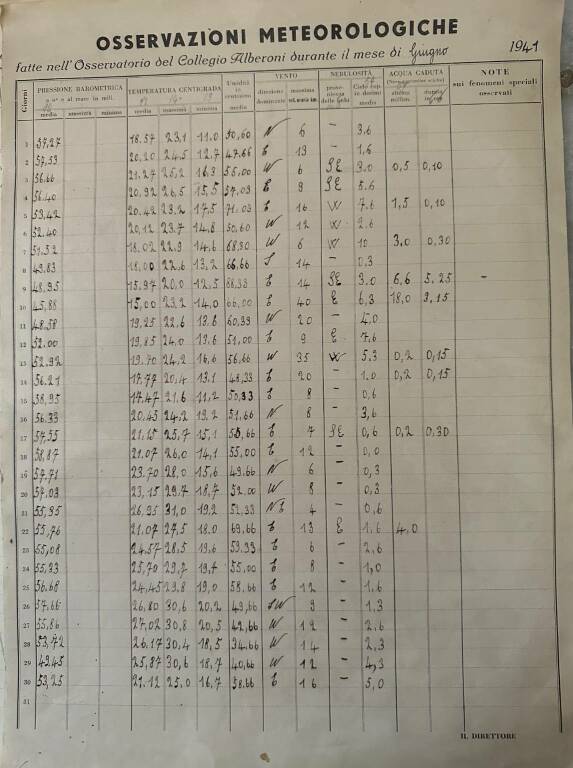 OSSERVAZIONI METEOROLOGICHE
fatte nell'Osservatorio del Collegio Alberoni durante il mese di Giugno 1941
Giorni PRESSIONE BAROMETRICA TEMPERATURA CENTIGRADA Umidità in centesimi VENTO NEBULOSITÀ ACQUA CADUTA NOTE
sui fenomeni speciali osservati
media massima minima media massima minima media direzione dominante massima
1 57,27 18.57 23,1 11.0 50,60 N 6 – 3.6
2 57,53 20,20 24,5 12,7 47.66 E 13 – 1,6
3 56.66 21,27 25,2 16,3 55,00 W 6 SE 3.0 0,5 0,10
4 56.40 20,92 26,5 15,5 57,03 E 9 SE 5.6
5 53,42 20.42 23,2 17,5 71.03 E 16 W 7.6 1,5 0,10
6 52.40 20,12 23,7 14,8 50,60 W 12 W 2.6
7 51.52 18.02 22,9 14,6 68,30 W 6 W 10 3,0 0,30
8 49.83 18,00 22,6 13,2 66,66 S 14 – 0,3
9 48,95 15,97 20,0 12,5 88,33 E 14 SE 3.0 6,6 5.25 –
10 45,88 15,00 23,2 14,0 66,00 E 40 E 6,3 18,0 3,15
11 48.58 19,25 22,6 13.6 60,33 W 20 – 4,0
12 52.00 19,85 24,0 13,6 51,00 E 9 E 7.6
13 52.92 19.70 24,2 16,6 56,66 W 35 W 5.3 0,2 0,15
14 56.21 17.77 20,4 13,1 48,33 E 20 – 1,0 0,2 0,15
15 58,95 17.47 21,6 11,2 50,33 E 8 – 0,6
16 56.33 20,45 24,2 13,2 51,66 N 8 – 3,6
17 57,55 21,15 25,7 15,1 58,66 E 7 SE 0,6 0,2 0,30
18 58,87 21,07 26,0 14,1 55,00 E 12 – 0,0
19 57,71 23.70 28,0 15,6 49,66 N 6 – 0,3
20 57,03 23,15 29,7 18,7 52.00 W 8 – 0,3
21 55,95 26,95 31,0 19,2 52,33 NE 4 – 0,6
22 55,76 21,07 27,5 18.0 69,66 E 13 E 1,6 4,0
23 55,08 24.57 28,5 19,6 59,33 E 6 – 2,6
24 55,33 25,70 29,2 19,4 55,00 E 8 – 1,0
25 56.68 24,45 29,8 19,0 58,66 E 12 – 1,6
26 57,66 26,80 30,6 20,2 49,66 SW 9 – 1,3
27 55,86 27,02 30,8 20,5 42,66 W 12 – 2,6
28 53,72 26,17 30,4 18,5 34,66 W 14 – 2,3
29 49.45 25,87 30,6 18,7 40,66 W 12 – 4,3
30 53,25 21.12 25,0 16,7 58.66 E 16 – 5,0
31
IL DIRETTORE